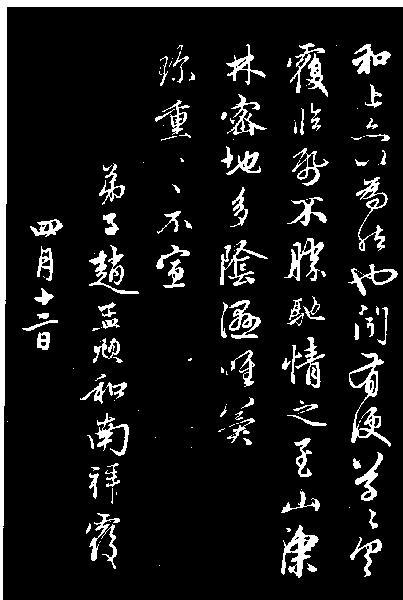 和上亦以為然也聞有便草々具
覆臨紙不勝馳情之至山深
林密地多陰濕唯冀
珍重、、不宣
弟子趙孟頫和南拜覆
四月十二日